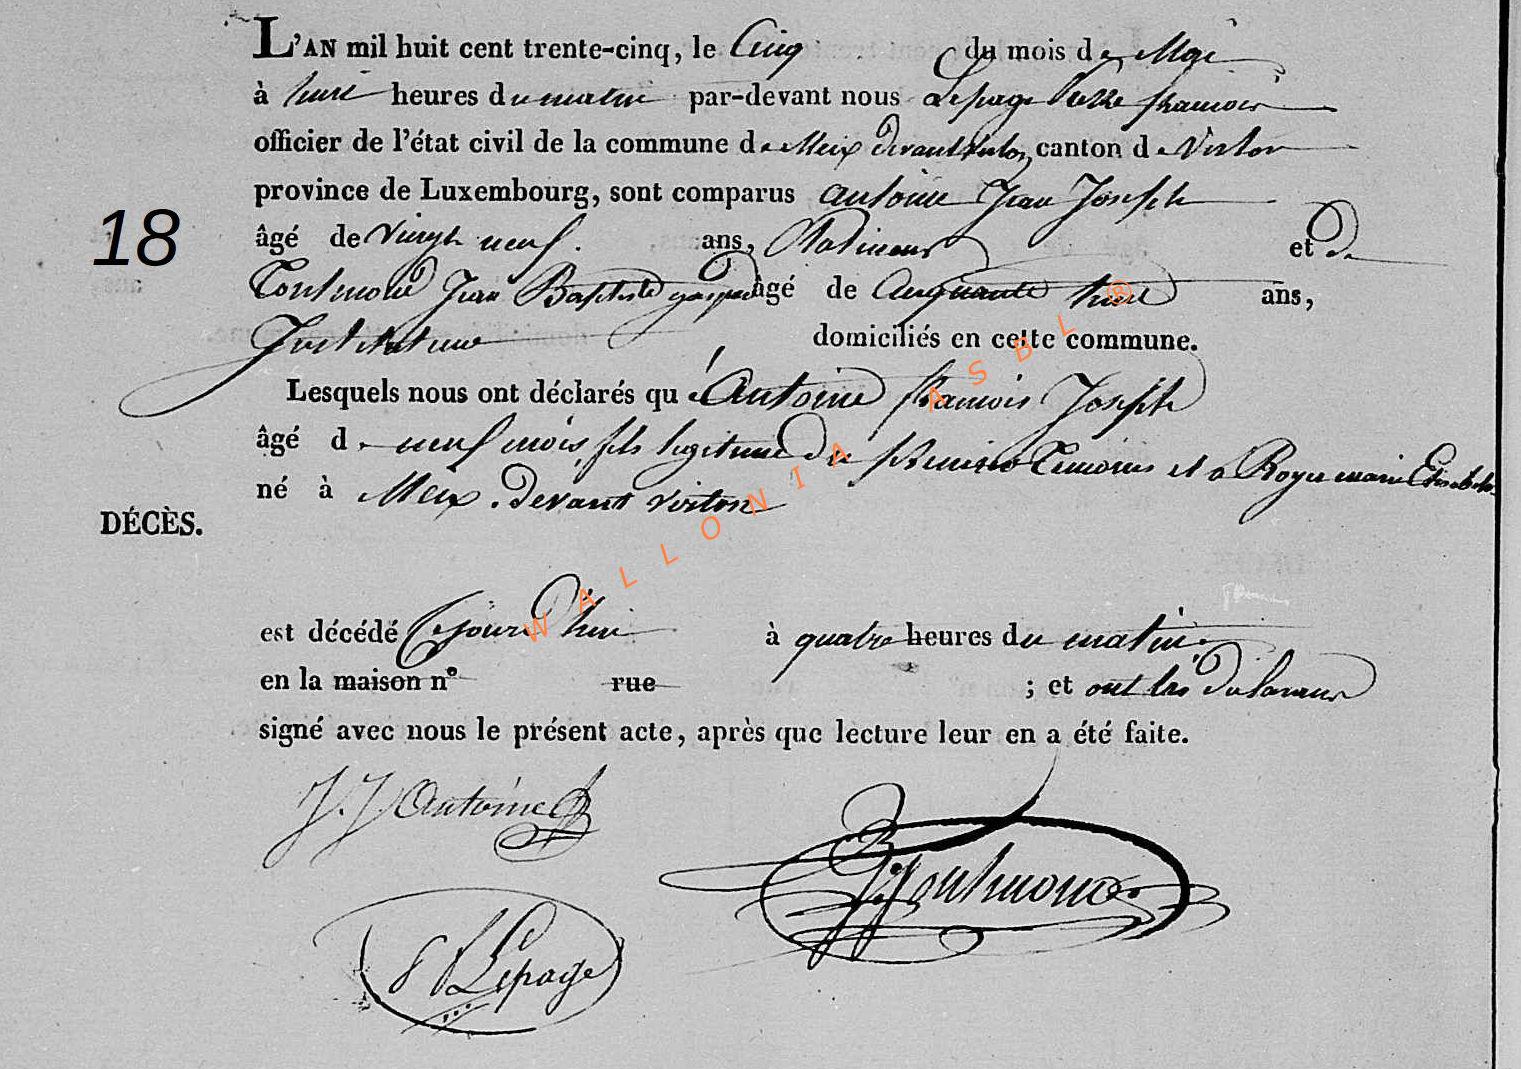 L'AN mil huit cent trente-cinq, le Cinq du mois de Mai
à huit heures du matin par-devant nous Lepage Pierre francois
officier de l'état civil de la commune de Meix devant virton, canton de Virton
province de Luxembourg, sont comparus antoine Jean Joseph
18
âgé de Vingt neuf. ans, et de
Jean Baptiste âgé de Cinquante huit ans,
Instituteur domiciliés en cette commune.
Lesquels nous ont déclarés qu'Antoine francois Joseph
âgé de neuf mois fils legitime de et
né à Meix devant virton
DÉCÈS.
est décédé Cejourd'hui à quatre heures du matin
en la maison n° rue ; et ont les declarans
signé avec nous le présent acte, après que lecture leur en a été faite.
J. J. Antoine
P f Lepage
WALLONIA ASBL ®